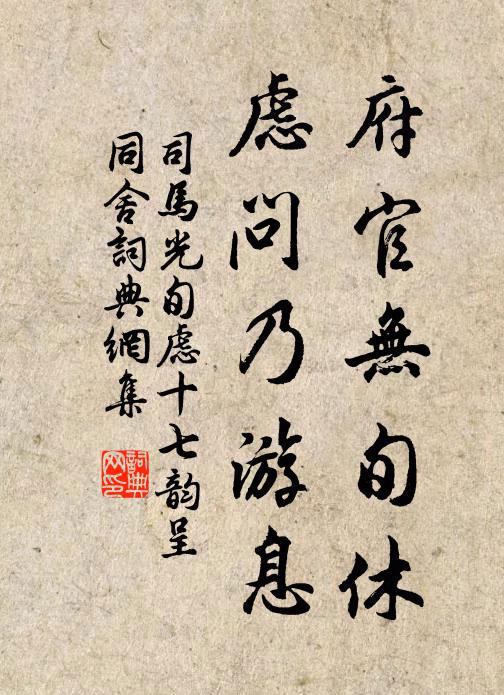 府官無旬休
慮問乃游息
司馬光旬慮十七韵呈
同舍詞典網集
詞典网印